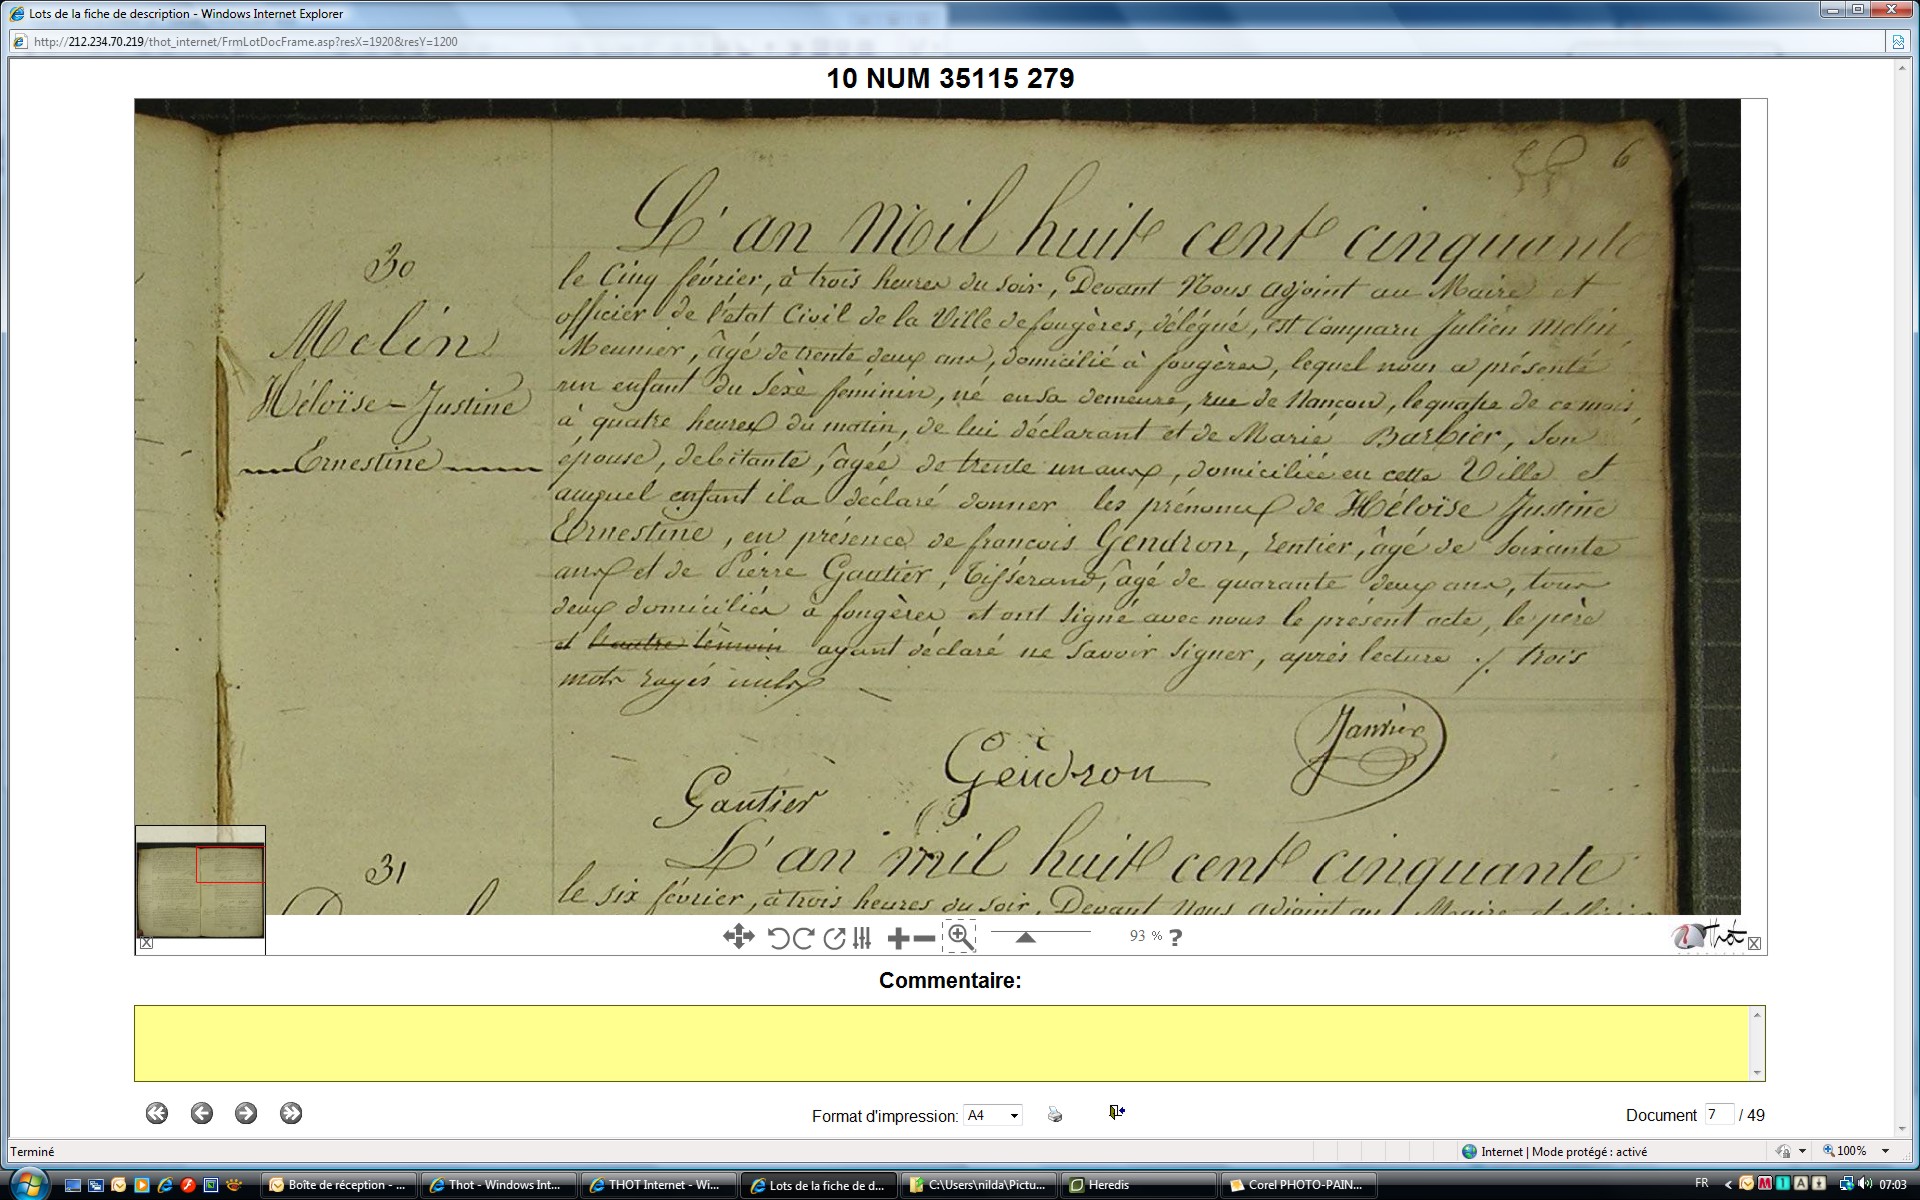 Lots de la fiche de description - Windows Internet Explorer
http://212.234.70.219/thot_internet/FrmLotDocFrame.asp?resX=1920&resY=1200
10 NUM 35115 279
6
L'an Mil huit cent cinquante
30
Melin
Héloïse-Justine
Ernestine
le Cinq février, à trois heures du soir, Devant Nous adjoint au Maire et
officier de l'état Civil de la Ville de fougères, délégué, est Comparu Julien Melin,
Meunier, âgé de trente deux ans, domicilié à fougères, lequel nous a présenté
un enfant du Sexe féminin, né en sa demeure, rue de Nançon, le quatre de ce mois,
à quatre heures du matin, de lui déclarant et de Marie Barbier, Son
épouse, debitante, âgée de trente un ans, domiciliée en cette Ville et
auquel enfant il a déclaré donner les prénoms de Héloïse Justine
Ernestine, en présence de françois Gendron, rentier, âgé de Soixante
ans et de Pierre Gautier, Tisserand, âgé de quarante deux ans, tous
deux domiciliés à fougères et ont signé avec nous le présent acte, le père
et l'autre témoin ayant déclaré ne Savoir Signer, après lecture ./. trois
mots rayés nuls
Janvier
Gendron
Gautier
31
L'an mil huit cent cinquante
le six février, à trois heures du soir, Devant Nous adjoint au Maire et
93 %
?
Thot
Commentaire:
Format d'impression: A4
Document 7 / 49
Terminé
Internet | Mode protégé : activé
100%
Boîte de réception - ...
Thot - Windows Int...
THOT Internet - Wi...
Lots de la fiche de d...
C:\Users\nilda\Pictu...
Heredis
Corel PHOTO-PAIN...
FR
07:03